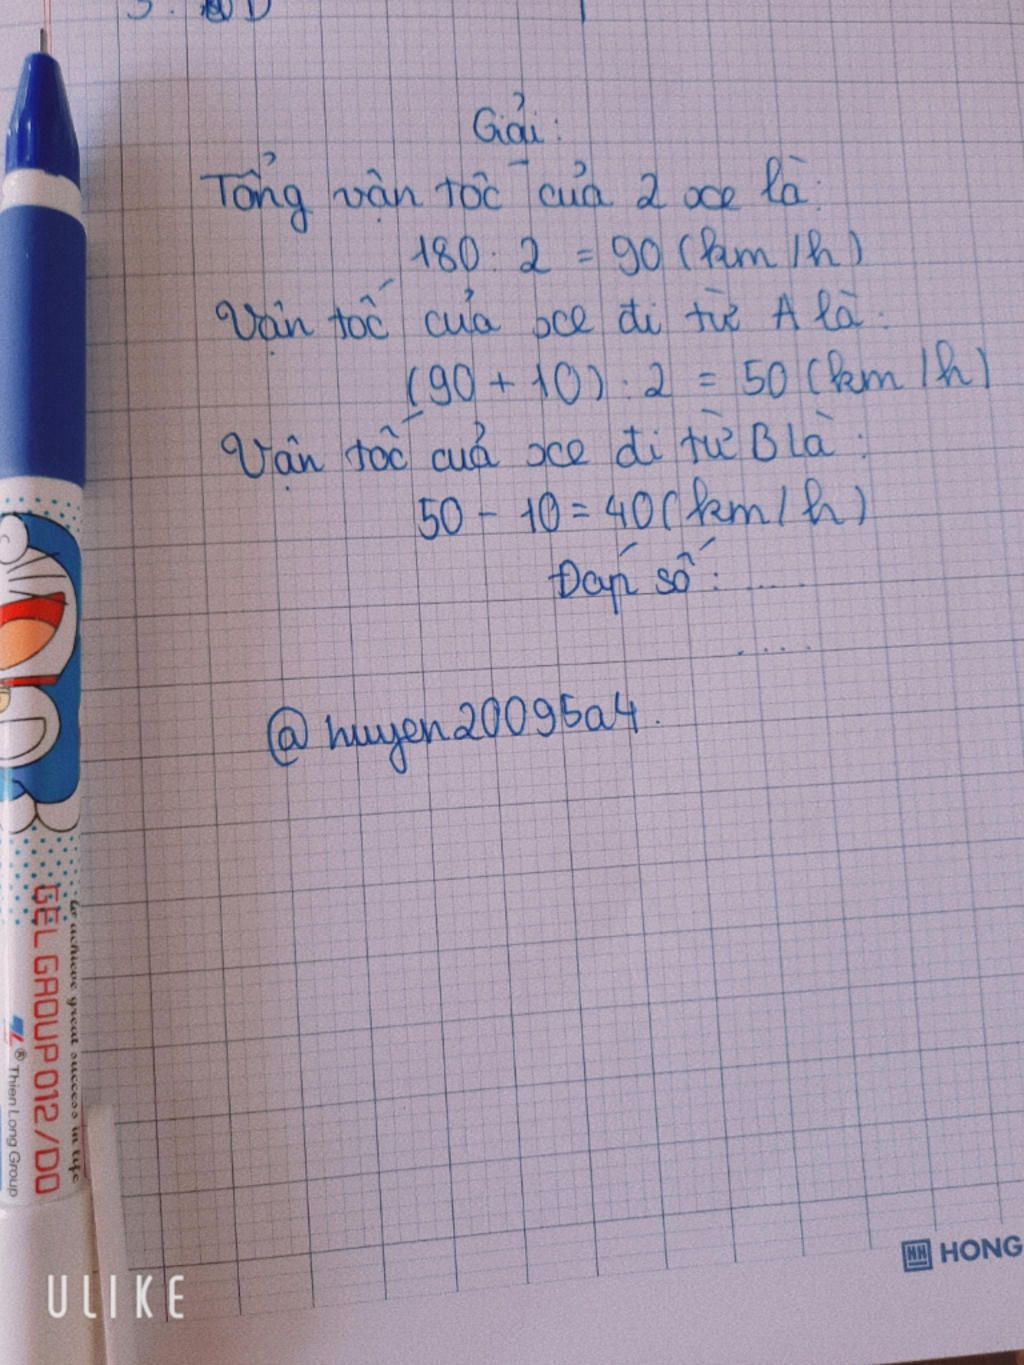 Giải:
Tổng vận tốc của 2 xe là:
180 : 2 = 90 (km/h)
Vận tốc của xe đi từ A là:
(90 + 10) : 2 = 50 (km/h)
Vận tốc của xe đi từ B là:
50 - 10 = 40 (km/h)
Đáp số: .....
....
@huyen20095a4.
to achieve great success in life
GEL GROUP 012/DO
® Thien Long Group
HH HONG
ULIKE